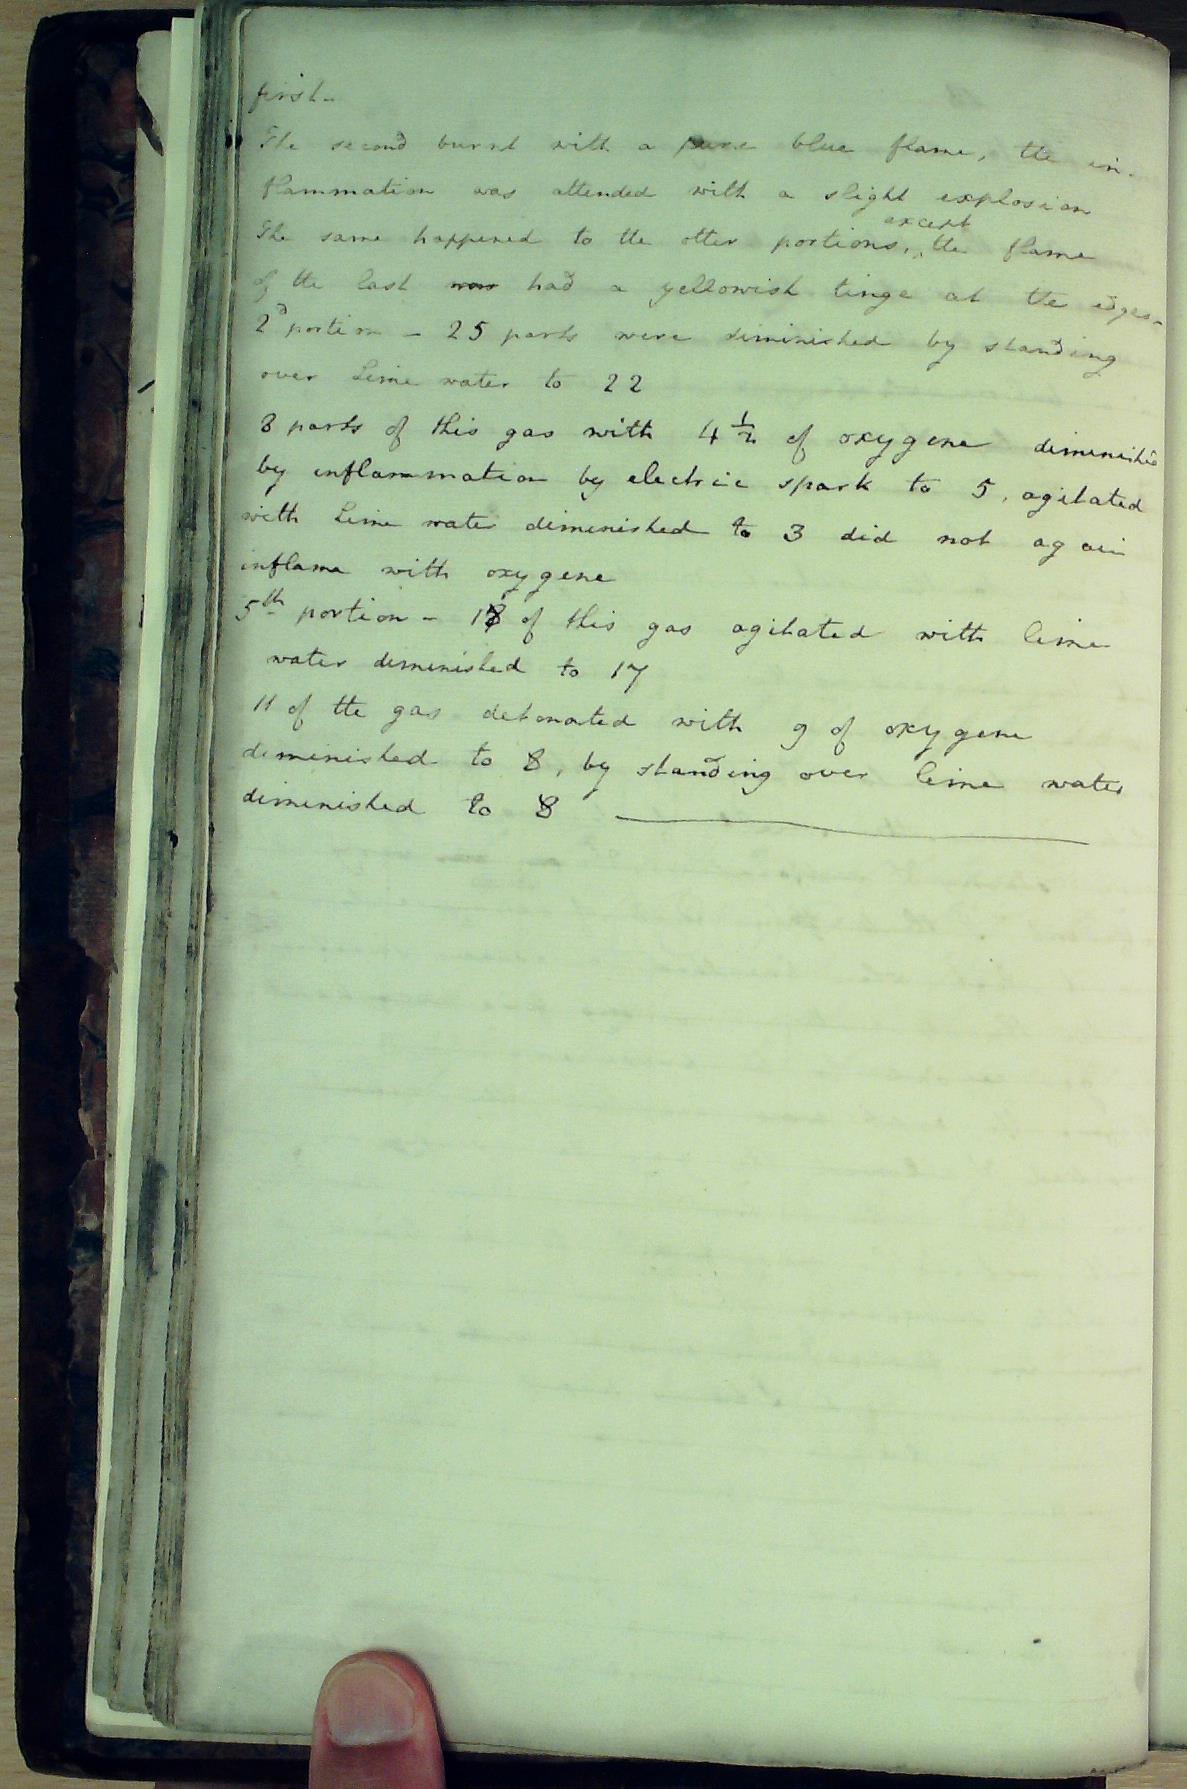 first-
The second burnt with a pure blue flame, the in-
flammation was attended with a slight explosion
except
The same happened to the other portions, the flame
of the last was had a yellowish tinge at the edges-
2d portion - 25 parts were diminished by standing
over Lime water to 22
8 parts of this gas with 4 1/2 of oxygene diminished
by inflammation by electric spark to 5, agitated
with Lime water diminished to 3 did not again
inflame with oxygene
5th portion - 18 of this gas agitated with lime
water diminished to 17
11 of the gas detonated with 9 of oxygene
diminished to 8, by standing over lime water
diminished to 8